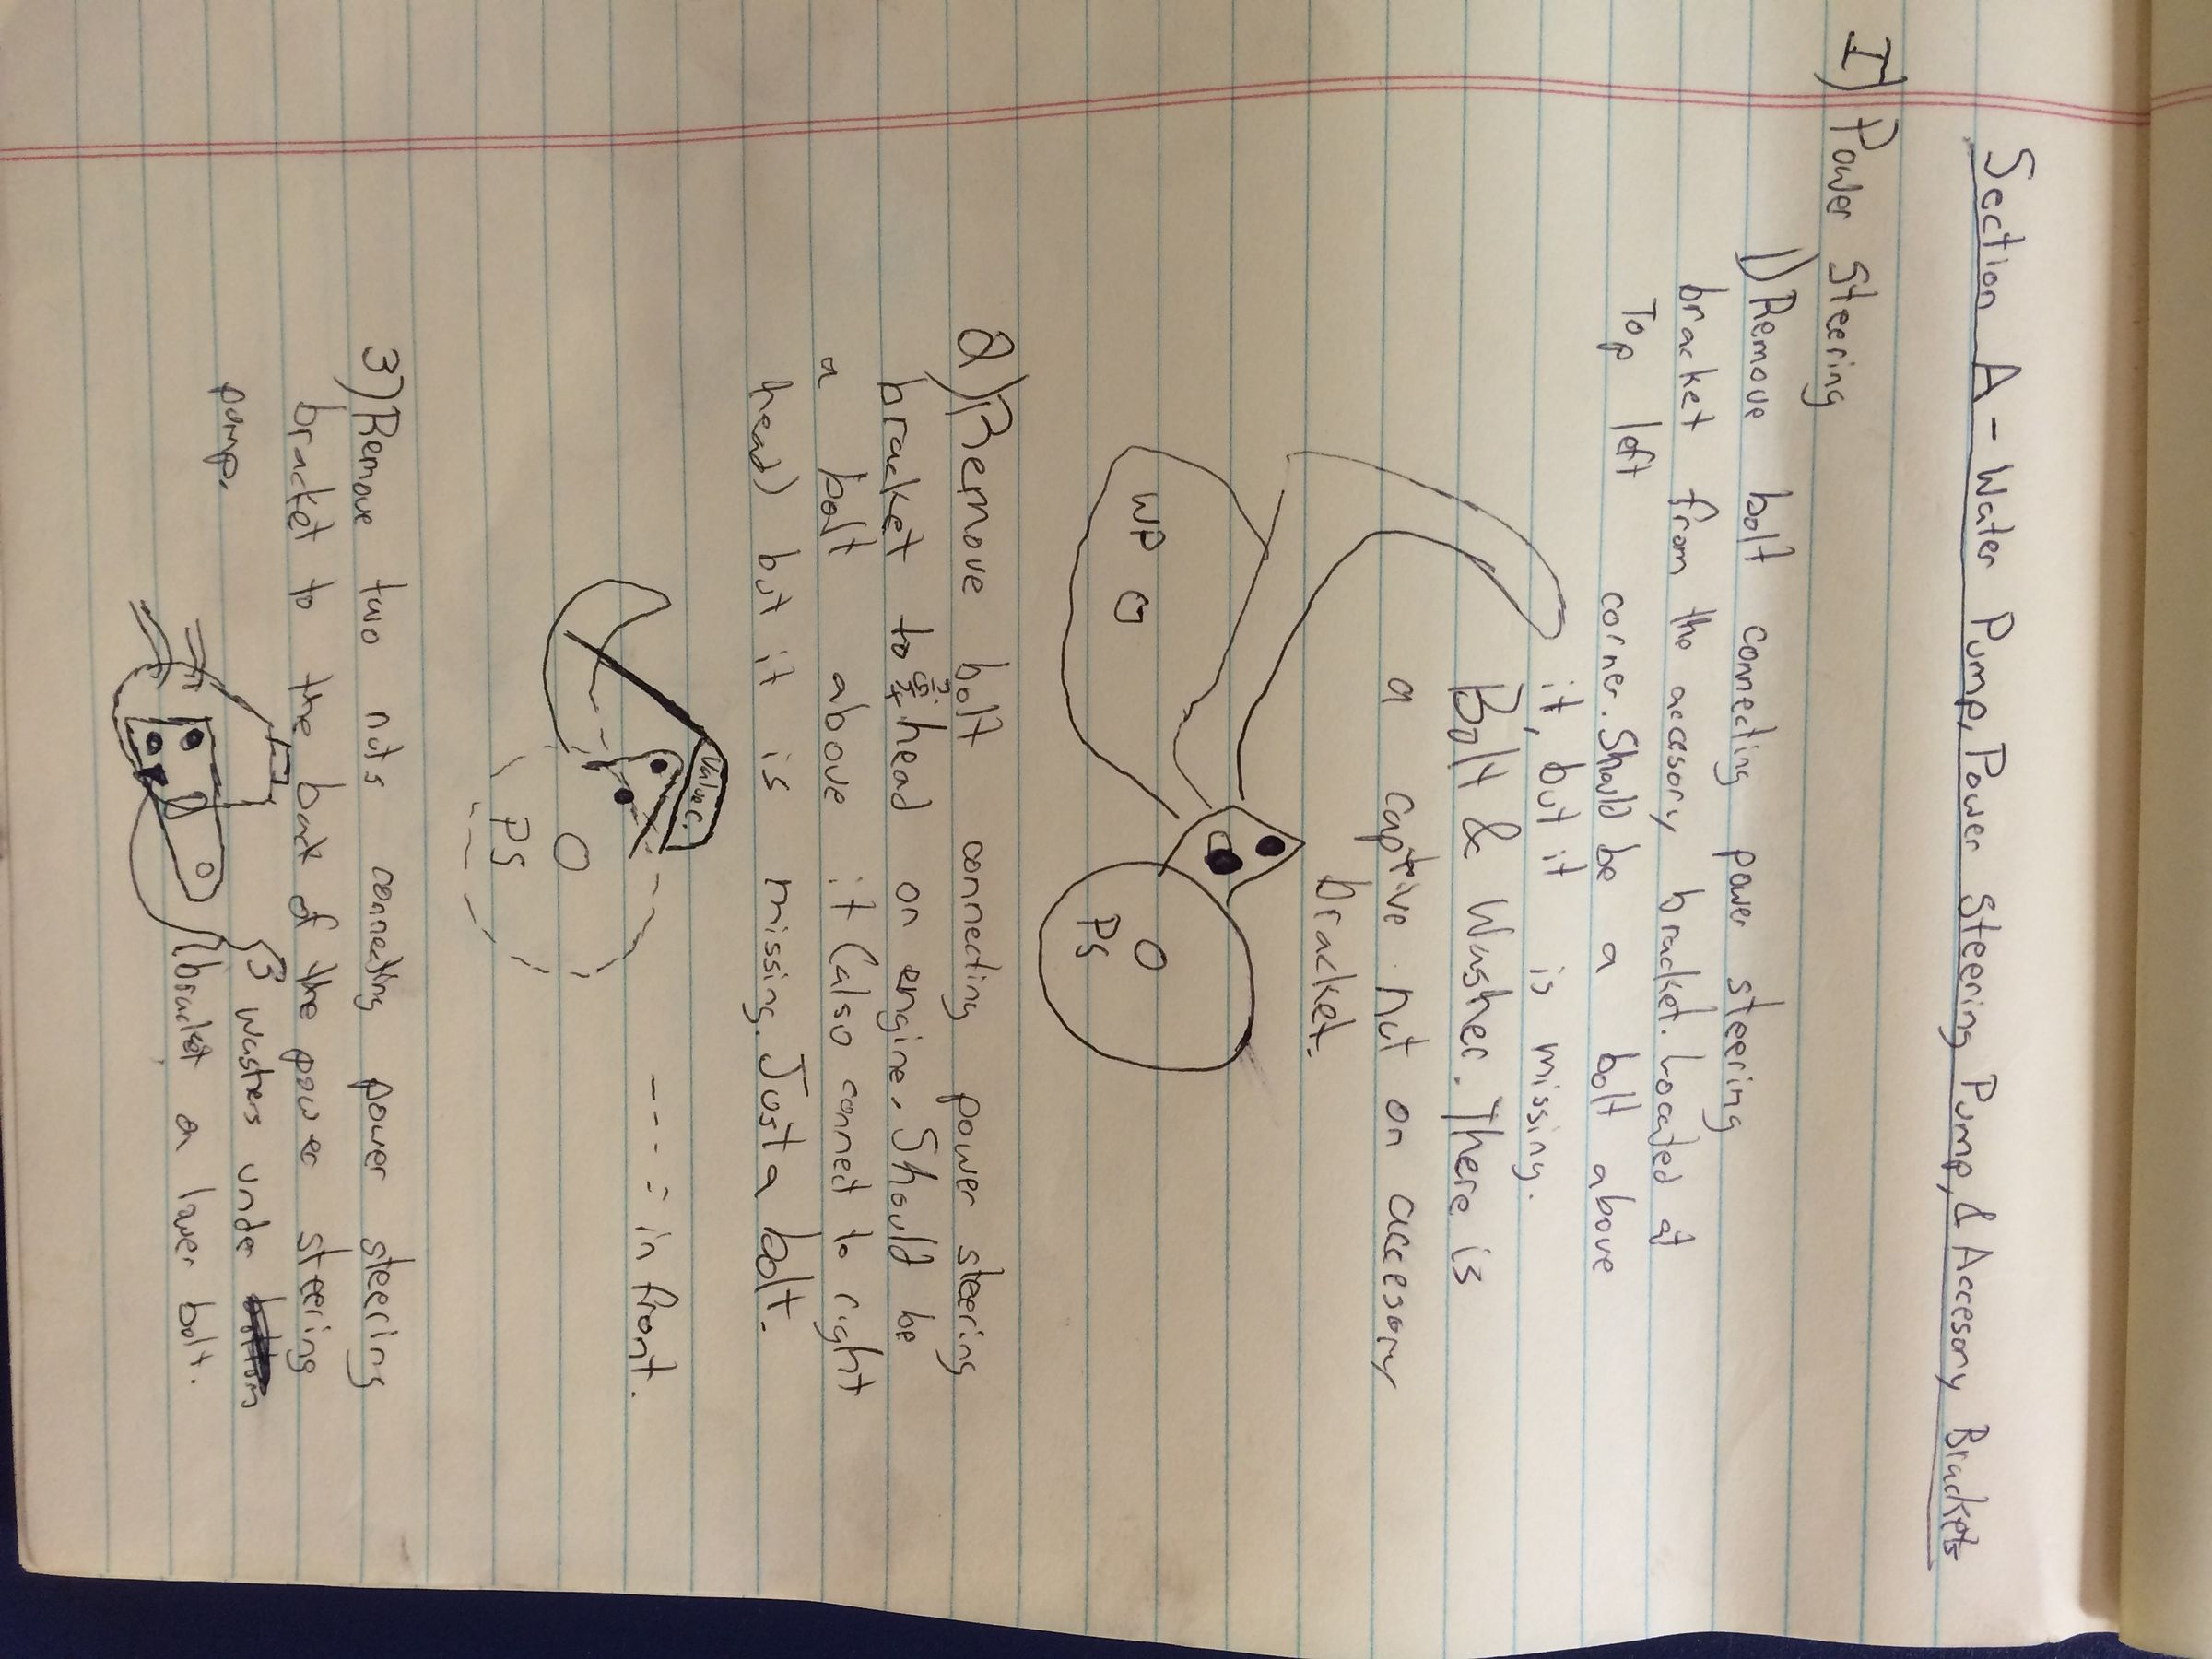 Section A - Water Pump, Power Steering Pump, & Accesory Brackets
I) Power Steering
1) Remove bolt connecting power steering
bracket from the accesory bracket. Located at
Top left corner. Should be a bolt above
it, but it is missing.
Bolt & Washer. There is
a captive nut on accesory
bracket.
WP
PS
2) Remove bolt connecting power steering
bracket to head on engine. Should be
a bolt above it (also connect to right
head) but it is missing. Just a bolt.
Valve C.
PS
---- = in front.
3) Remove two nuts connecting power steering
bracket to the back of the power steering
pump.
3 washers under
bracket a lower bolt.